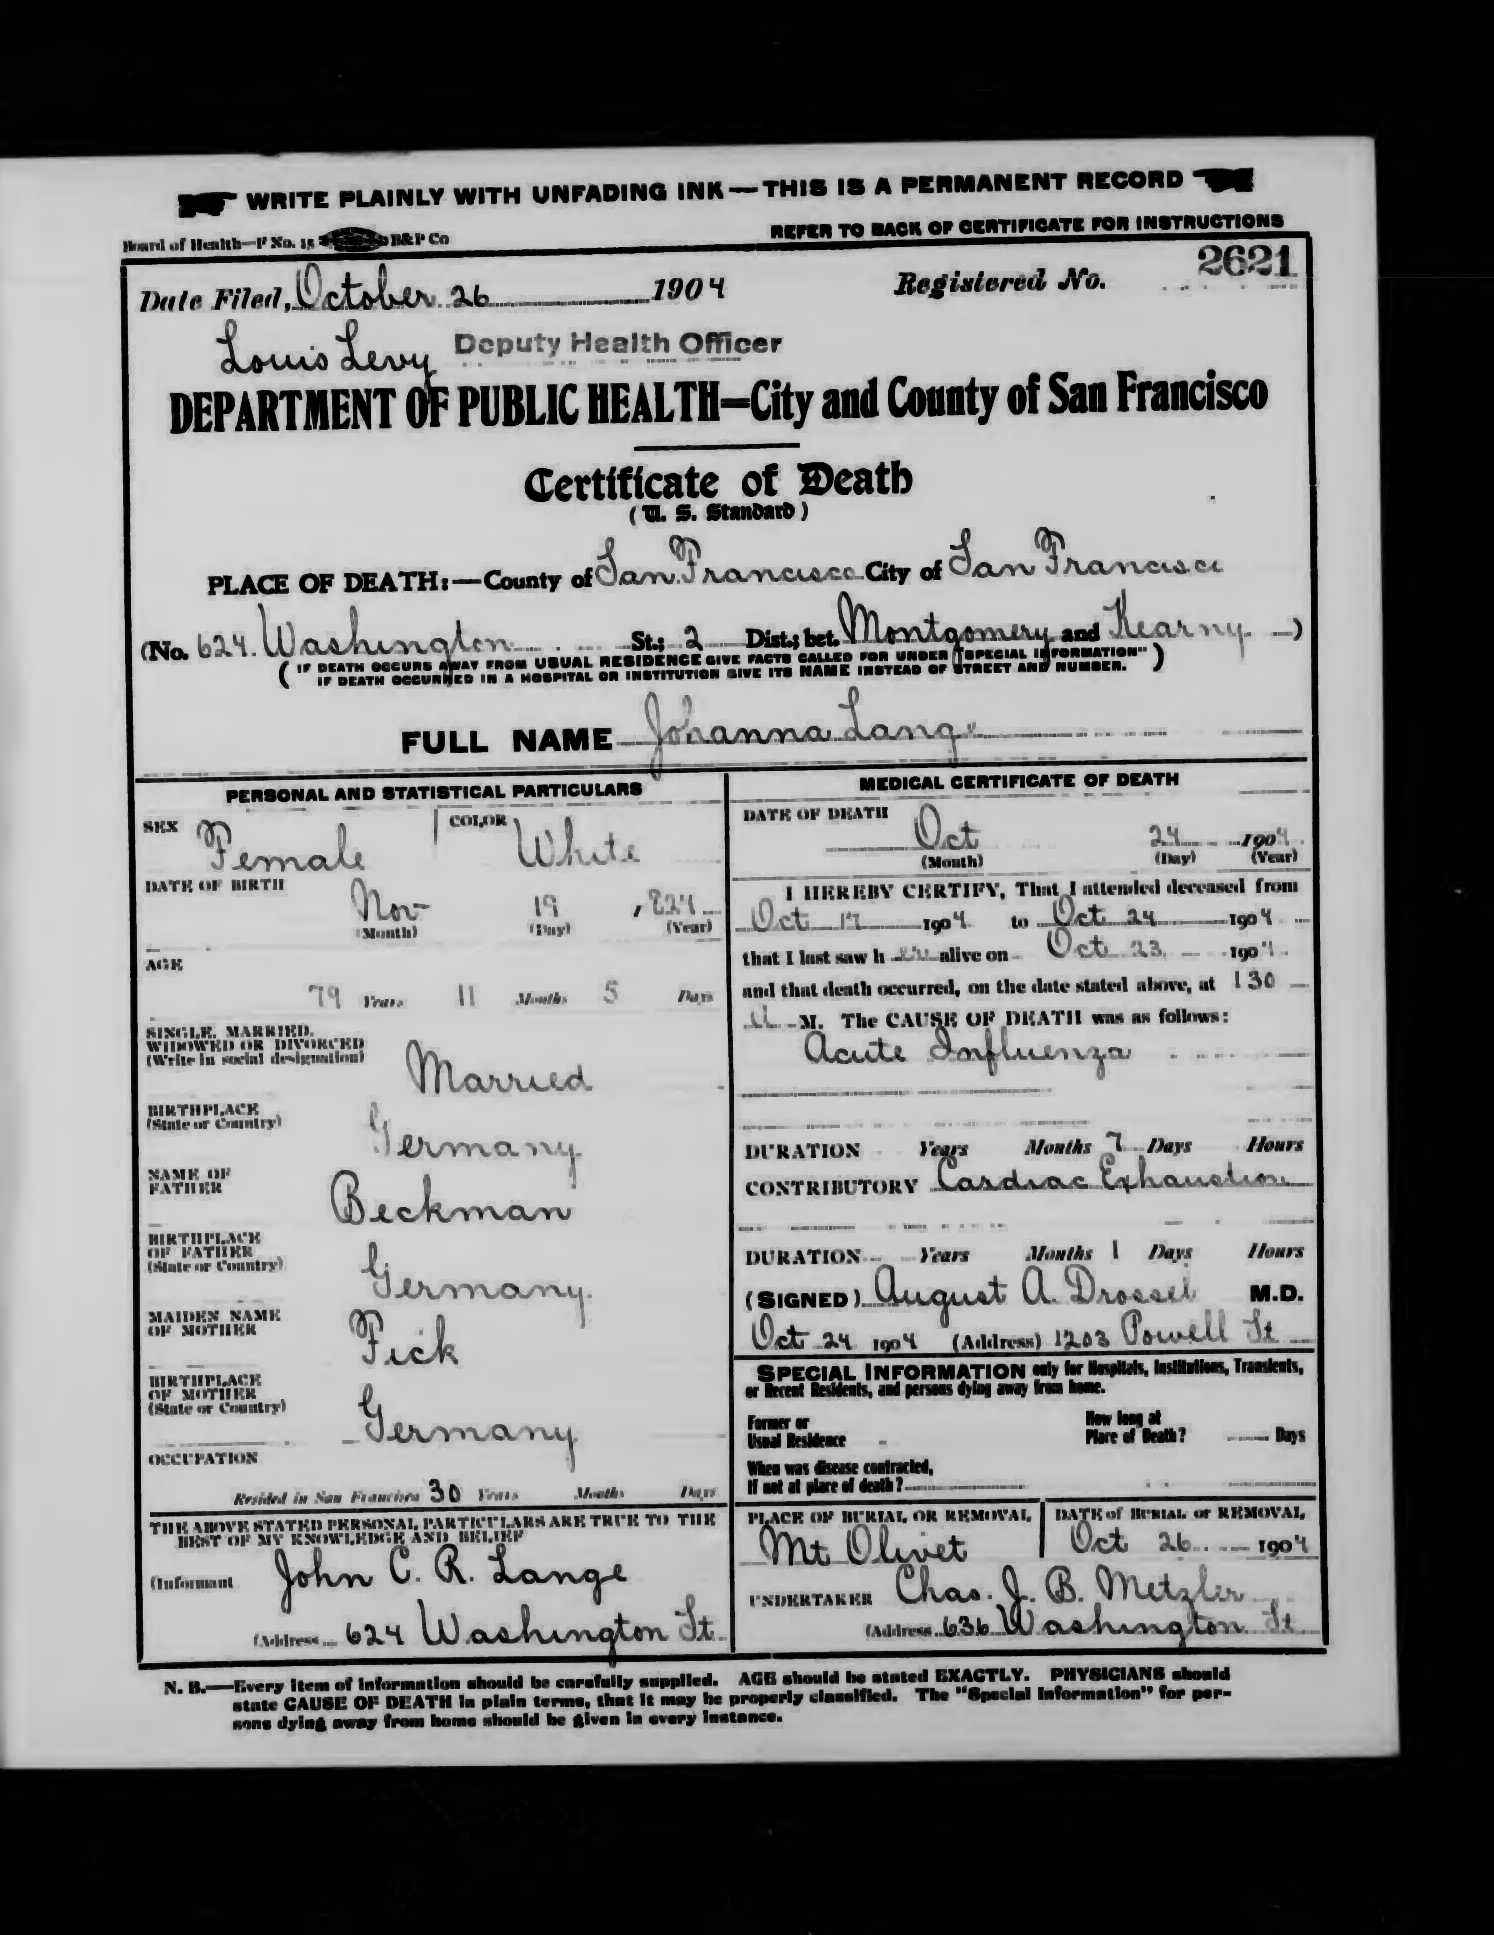 WRITE PLAINLY WITH UNFADING INK — THIS IS A PERMANENT RECORD
Board of Health—F No. 15 B&P Co
REFER TO BACK OF CERTIFICATE FOR INSTRUCTIONS
Date Filed, October 26 1904 Registered No. 2621
Louis Levy Deputy Health Officer
DEPARTMENT OF PUBLIC HEALTH=City and County of San Francisco
Certificate of Death
(U. S. Standard)
PLACE OF DEATH:—County of San Francisco City of San Francisco
(No. 624 Washington St.; 2 Dist.; bet. Montgomery and Kearny )
( IF DEATH OCCURS AWAY FROM USUAL RESIDENCE GIVE FACTS CALLED FOR UNDER "SPECIAL INFORMATION" )
IF DEATH OCCURRED IN A HOSPITAL OR INSTITUTION GIVE ITS NAME INSTEAD OF STREET AND NUMBER.
FULL NAME Johanna Lange
PERSONAL AND STATISTICAL PARTICULARS
SEX Female COLOR White
DATE OF BIRTH Nov 19, 824
(Month) (Day) (Year)
AGE
79 Years 11 Months 5 Days
SINGLE, MARRIED,
WIDOWED OR DIVORCED
(Write in social designation) Married
BIRTHPLACE
(State or Country) Germany
NAME OF
FATHER Beckman
BIRTHPLACE
OF FATHER
(State or Country) Germany
MAIDEN NAME
OF MOTHER Fick
BIRTHPLACE
OF MOTHER
(State or Country) Germany
OCCUPATION
Resided in San Francisco 30 Years Months Days
THE ABOVE STATED PERSONAL PARTICULARS ARE TRUE TO THE
BEST OF MY KNOWLEDGE AND BELIEF
(Informant John C. R. Lange
(Address 624 Washington St.
MEDICAL CERTIFICATE OF DEATH
DATE OF DEATH
Oct 24 1904
(Month) (Day) (Year)
I HEREBY CERTIFY, That I attended deceased from
Oct 17 1904 to Oct 24 1904
that I last saw h er alive on Oct 23 1904
and that death occurred, on the date stated above, at 130
a M. The CAUSE OF DEATH was as follows:
Acute Influenza
DURATION Years Months 7 Days Hours
CONTRIBUTORY Cardiac Exhaustion
DURATION Years Months 1 Days Hours
(SIGNED) August A. Drossel M.D.
Oct 24 1904 (Address) 1203 Powell St
SPECIAL INFORMATION only for Hospitals, Institutions, Transients,
or Recent Residents, and persons dying away from home.
Former or
Usual Residence
How long at
Place of Death? Days
When was disease contracted,
If not at place of death?
PLACE OF BURIAL OR REMOVAL
Mt Olivet
DATE of BURIAL or REMOVAL
Oct 26 1904
UNDERTAKER Chas. J. B. Metzler
(Address 636 Washington St
N. B.—Every item of information should be carefully supplied. AGE should be stated EXACTLY. PHYSICIANS should
state CAUSE OF DEATH in plain terms, that it may be properly classified. The "Special Information" for per-
sons dying away from home should be given in every instance.